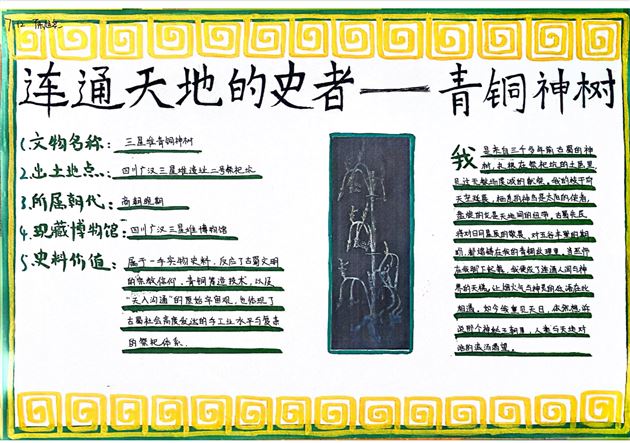 连通天地的史者——青铜神树
1.文物名称：三星堆青铜神树
2.出土地点：四川广汉三星堆遗址二号祭祀坑
3.所属朝代：商朝晚期
4.现藏博物馆：四川广汉三星堆博物馆
5.史料价值：属于一手实物史料，反应了古蜀文明
的宗教信仰、青铜铸造技术，以及
“天人沟通”的原始宇宙观，也体现了
古蜀社会高度发达的手工业水平与繁荣
的祭祀体系.
我是来自三千多年前古蜀的神
树，扎根在祭祀坑的土邑里
天空延展，栖息的神鸟是太阳的使者，
是天地间的纽带。古蜀先民
将对日月星辰的敬畏、对五谷丰登的期
盼，都熔铸在我的青铜纹理里，当祭师
在我脚下起舞，我便成了连通人间与神
界的天梯，让烟火气与神灵的低语在此
相遇。如今我重见天日，依然想诉
说那个神秘王朝里，人类与天地对
话的滚烫渴望。